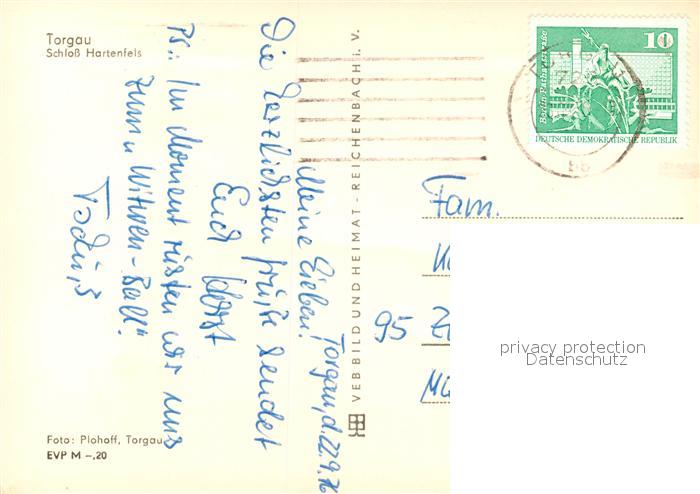 Torgau
Schloß Hartenfels
Torgau, d. 22.9.76
Meine Lieben!
Die herzlichsten Grüße sendet
Euch Horst
Ps.: Im Moment rüsten wir uns
zum "Witwen-Ball"
Tschüß
Foto: Plohoff, Torgau
EVP M –,20
VEB BILD UND HEIMAT - REICHENBACH i. V.
10
Berlin Rathausstraße
DEUTSCHE DEMOKRATISCHE REPUBLIK
Fam.
95
privacy protection
Datenschutz